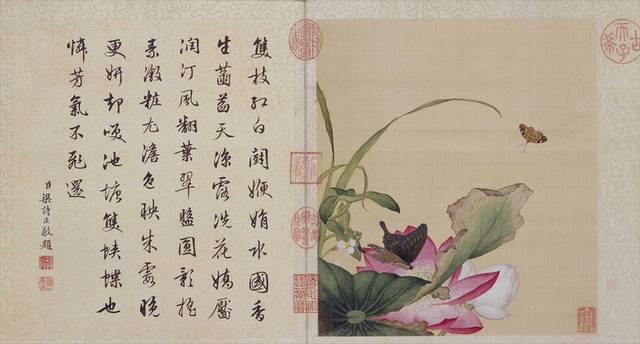 雙枝紅白鬪娟水國香
生菡萏天涼露洗花嬌靨
潤汀風翻葉翠盤圓影搖
素瀲粧尤澹色映朱霞晚
更妍却咲池塘雙蛺蝶也
憐芳氣不飛還
臣梁詩正敬題
古希天子